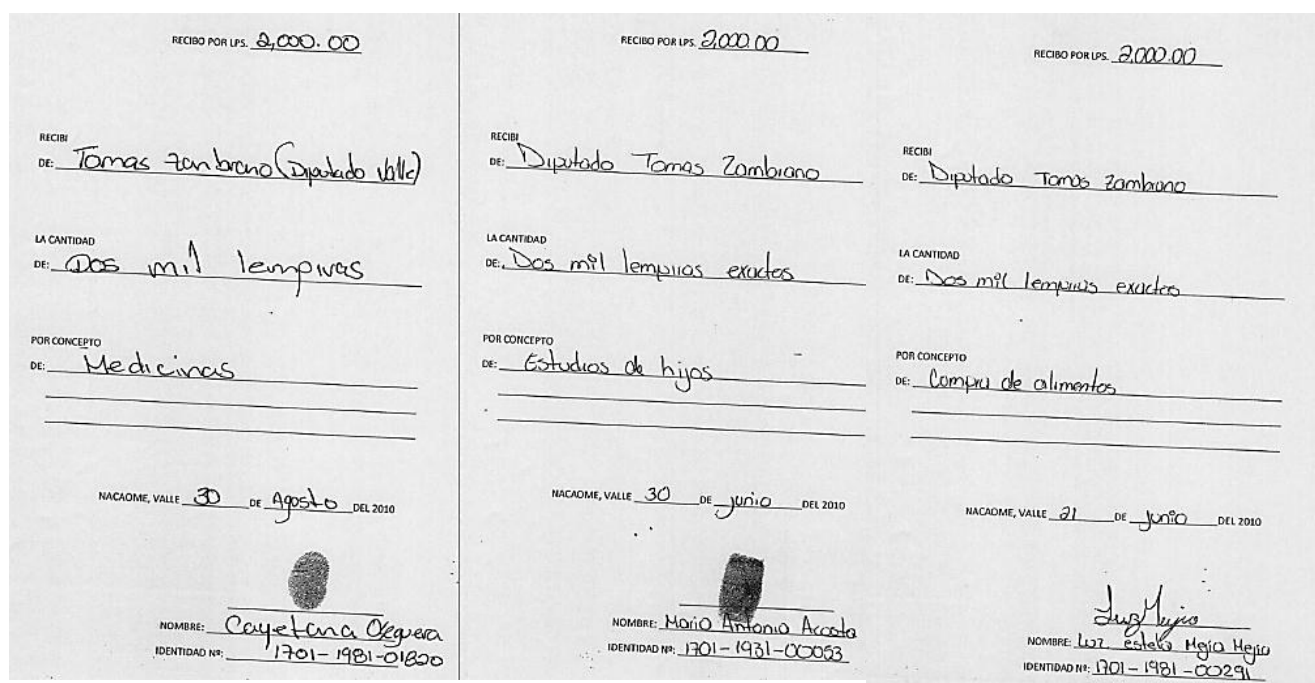 RECIBO POR LPS. 2,000.00
RECIBI
DE: Tomas Zanbrano (Diputado Valle)
LA CANTIDAD
DE: Dos mil lempiras
POR CONCEPTO
DE: Medicinas
NACAOME, VALLE 30 DE Agosto DEL 2010
NOMBRE: Cayetana Oseguera
IDENTIDAD Nº: 1701-1981-01820
RECIBO POR LPS. 2,000.00
RECIBI
DE: Diputado Tomas Zambrano
LA CANTIDAD
DE: Dos mil lempiras exactos
POR CONCEPTO
DE: Estudios de hijos
NACAOME, VALLE 30 DE junio DEL 2010
NOMBRE: Mario Antonio Acosta
IDENTIDAD Nº: 1701-1931-00053
RECIBO POR LPS. 2,000.00
RECIBI
DE: Diputado Tomas Zambrano
LA CANTIDAD
DE: Dos mil lempiras exactos
POR CONCEPTO
DE: Compra de alimentos
NACAOME, VALLE 21 DE junio DEL 2010
Luz Mejia
NOMBRE: Luz estela Mejia Mejia
IDENTIDAD Nº: 1701-1981-00291